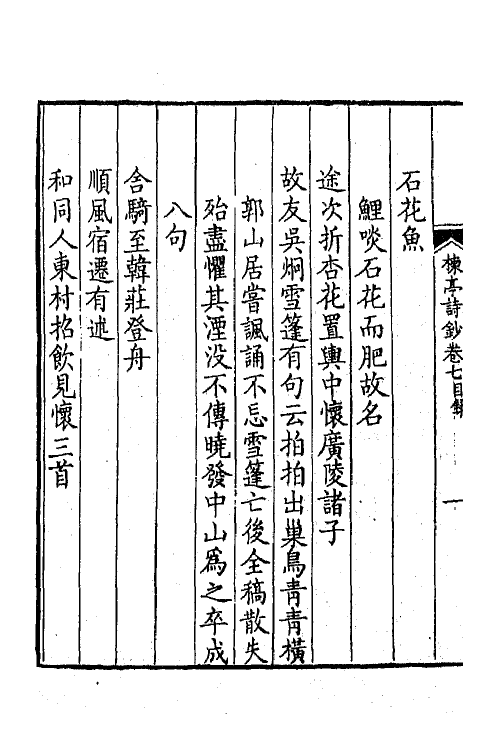 楝亭詩鈔卷七目錄
一
石花魚
鯉啖石花而肥故名
途次折杏花置輿中懷廣陵諸子
故友吳炯雪篷有句云拍拍出巢鳥青青橫
郭山居嘗諷誦不忘雪篷亡後全稿散失
殆盡懼其湮没不傳曉發中山爲之卒成
八句
舍騎至韓莊登舟
順風宿遷有述
和同人東村招飲見懷三首